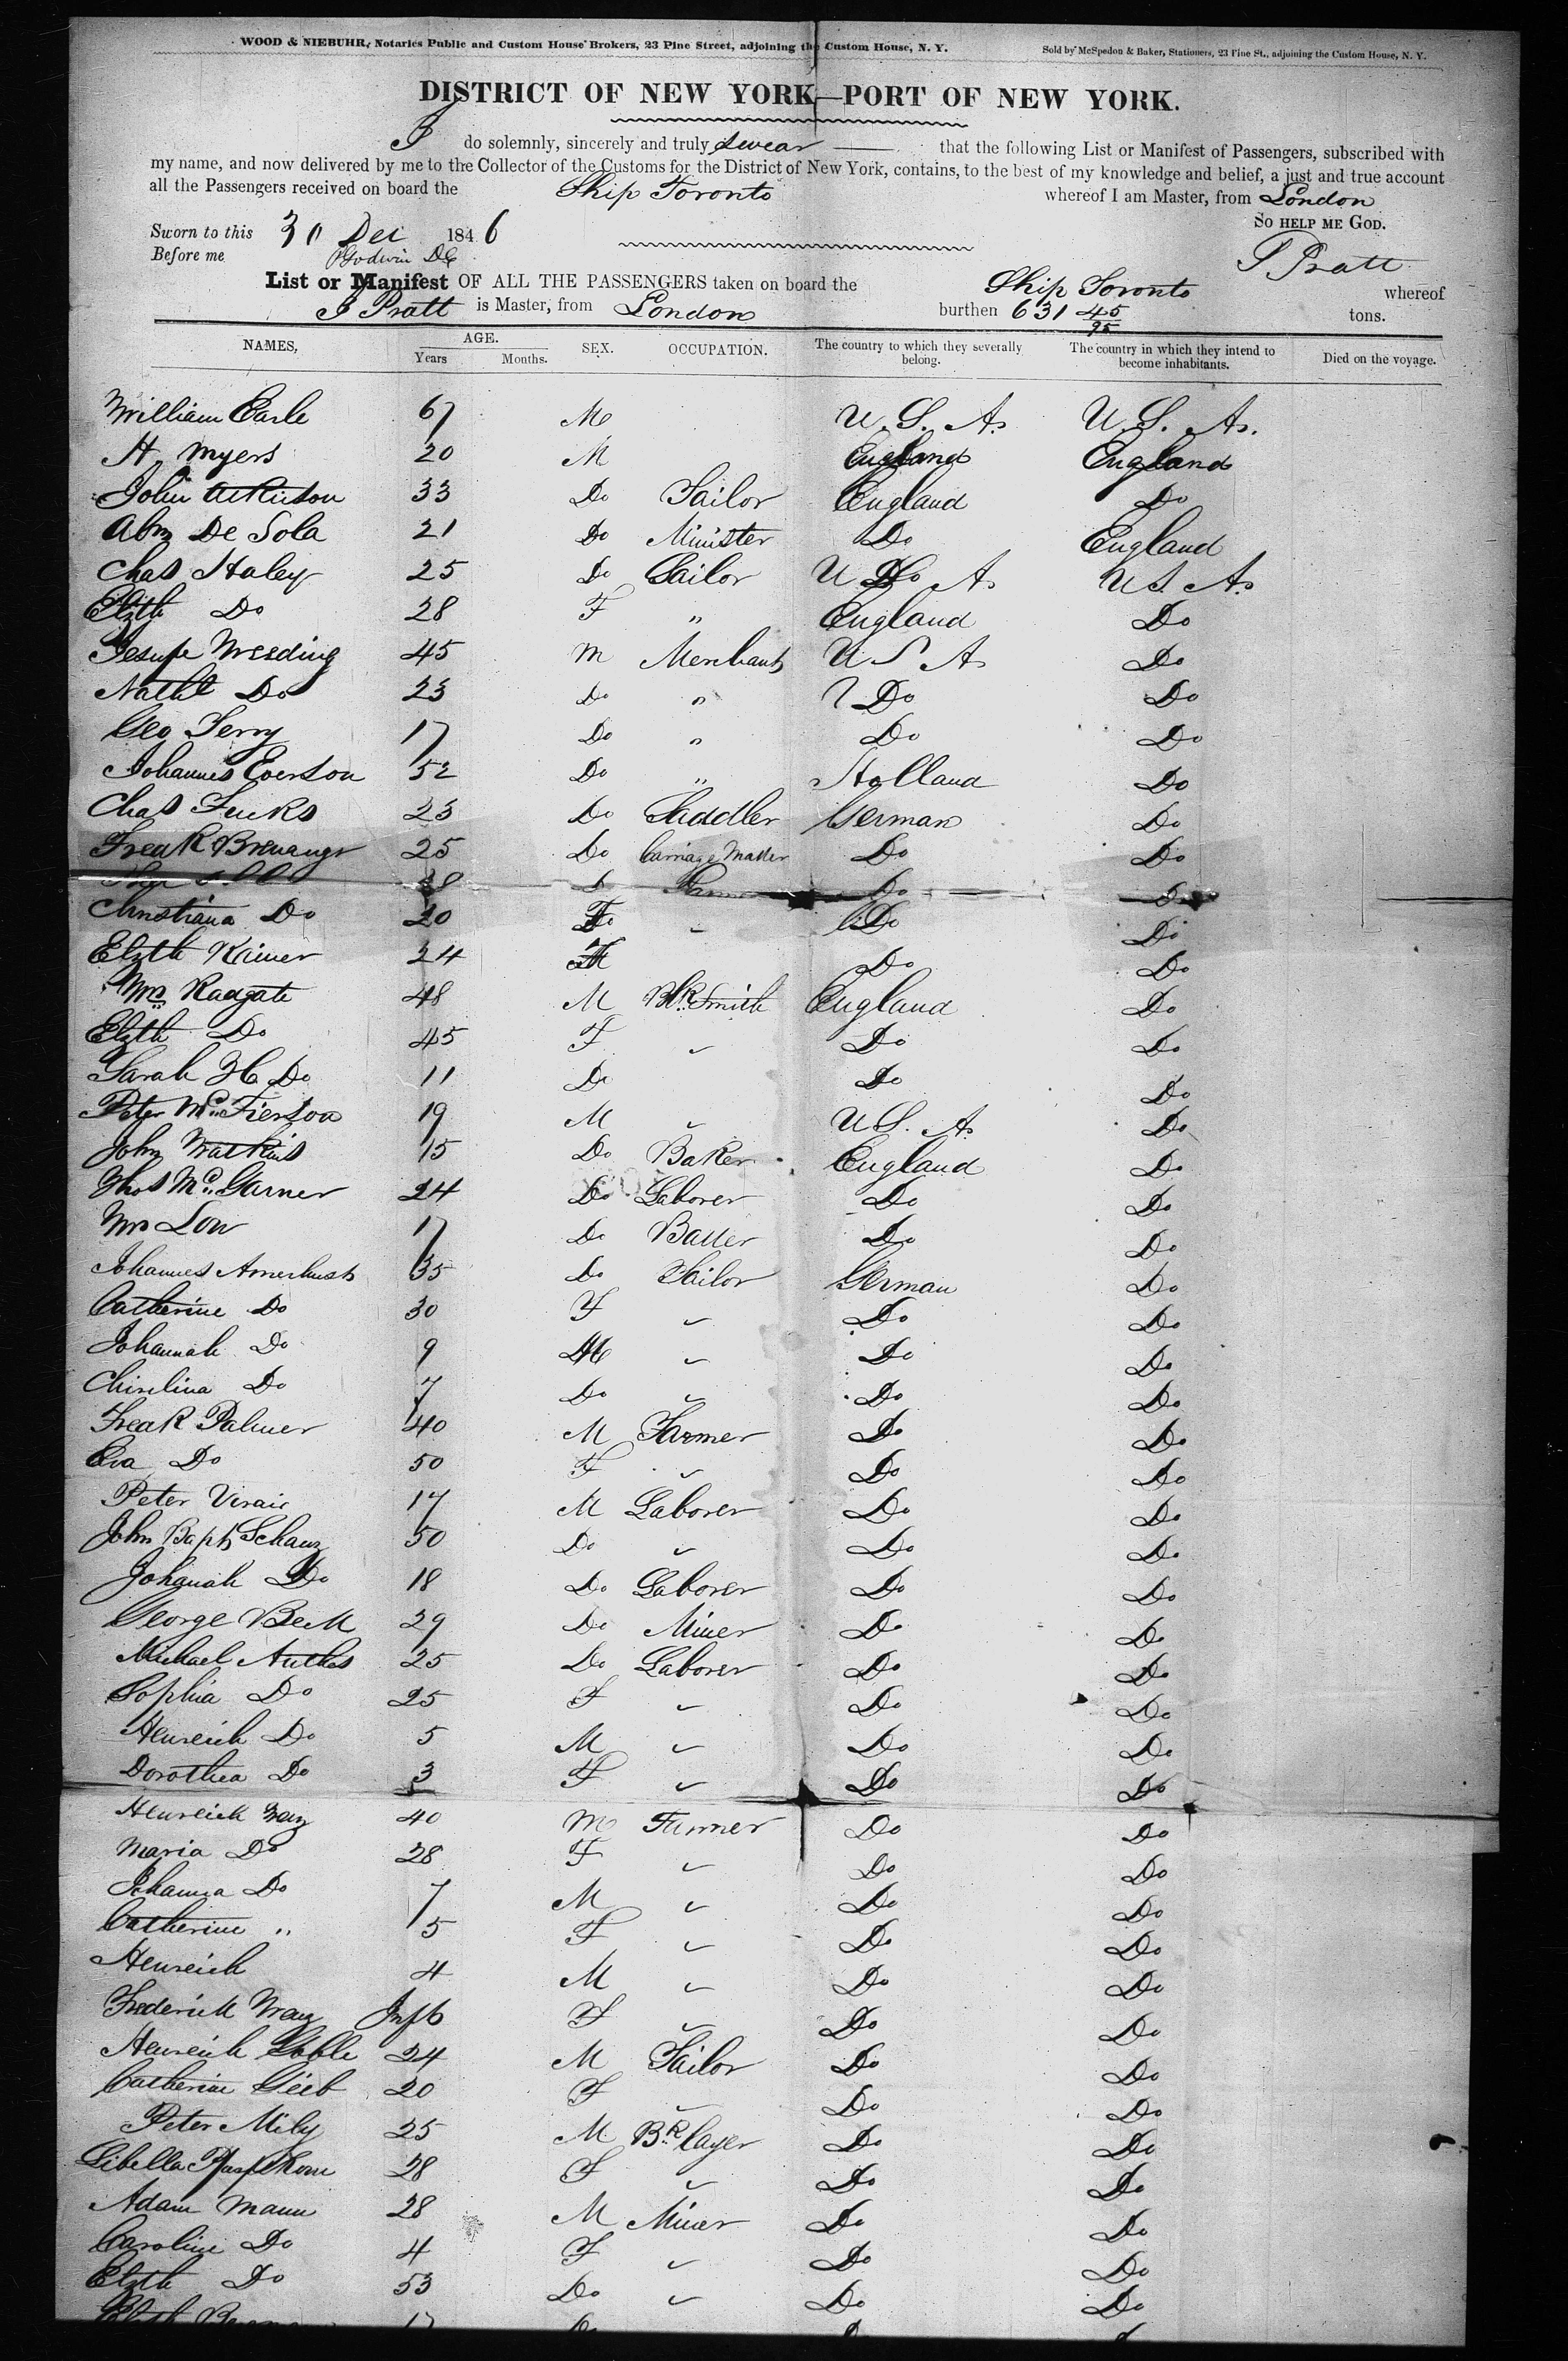 WOOD & NIEBUHR, Notaries Public and Custom House Brokers, 23 Pine Street, adjoining the Custom House, N. Y.
Sold by McSpedon & Baker, Stationers, 23 Pine St., adjoining the Custom House, N. Y.
DISTRICT OF NEW YORK—PORT OF NEW YORK.
I do solemnly, sincerely and truly swear that the following List or Manifest of Passengers, subscribed with
my name, and now delivered by me to the Collector of the Customs for the District of New York, contains, to the best of my knowledge and belief, a just and true account
all the Passengers received on board the Ship Toronto whereof I am Master, from London
SO HELP ME GOD.
Sworn to this 30 Dec 1846
Before me Godwin DC
Pratt
List or Manifest OF ALL THE PASSENGERS taken on board the Ship Toronto whereof
Pratt is Master, from London burthen 631 45/95 tons.
NAMES, AGE. Years Months. SEX. OCCUPATION. The country to which they severally belong. The country in which they intend to become inhabitants. Died on the voyage.
William Earle 67 M U. S. A. U. S. A.
H Myers 20 M England England
John Atkinson 33 Do Sailor England Do
Abm De Sola 21 Do Minister Do England
Chas Haley 25 Do U S A U S A
Elzth Do 28 F " England Do
Jesupe Weeding 45 M Merchant U S A Do
Nathl Do 23 Do " Do Do
Geo Terry 17 Do " Do Do
Johannes Everson 52 Do " Holland Do
Chas Fucks 23 Do Saddler German Do
Fredk 25 Do Carriage Maker Do Do
Do
Christiana Do 20 F Do Do
Elzth 24 Do Do
Wm Radgate 48 M Blk Smith England Do
Elzth Do 45 F Do Do
Sarah H Do 11 Do Do Do
Peter 19 M U S. A Do
John Watkins 15 Do Baker England Do
Thos McGarner 24 Do Laborer Do Do
Wm Low 17 Do Do Do
Johannes 35 Do German Do
Catherine Do 30 F Do Do
Johannah Do 9 Do Do
Do 7 Do Do Do
Fredk Palmer 40 M Farmer Do Do
Eva Do 50 F Do Do
Peter 17 M Laborer Do Do
John Bapt Schanz 50 Do Do Do
Johanah Do 18 Do Laborer Do Do
George Beck 29 Do Miner Do Do
Michael Anthes 25 Do Laborer Do Do
Sophia Do 25 F Do Do
Henreich Do 5 M Do Do
Dorothea Do 3 F Do Do
Henreich 40 M Farmer Do Do
Maria Do 28 F Do Do
Johanna Do 7 M Do Do
Catherine " 5 F Do Do
Henreich 4 M Do Do
Frederick Inft F Do Do
Henreich 24 M Do Do
Catherine Gieb 20 F Do Do
Peter Mily 25 M Bk layer Do Do
28 F Do Do
Adam Mann 28 M Miner Do Do
Caroline Do 4 F Do Do
Elzth Do 53 Do Do Do